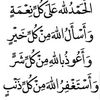 الحَمْدُ للهِ عَلَى كُلِّ نِعْمَةٍ
وَ أَسْأَلُ اللهَ مِنْ كُلِّ خَيْرٍ
وَ أَعُوذُ بِاللهِ مِنْ كُلِّ شَرٍّ
وَ أَسْتَغْفِرُ اللهَ مِنْ كُلِّ ذَنْبٍ